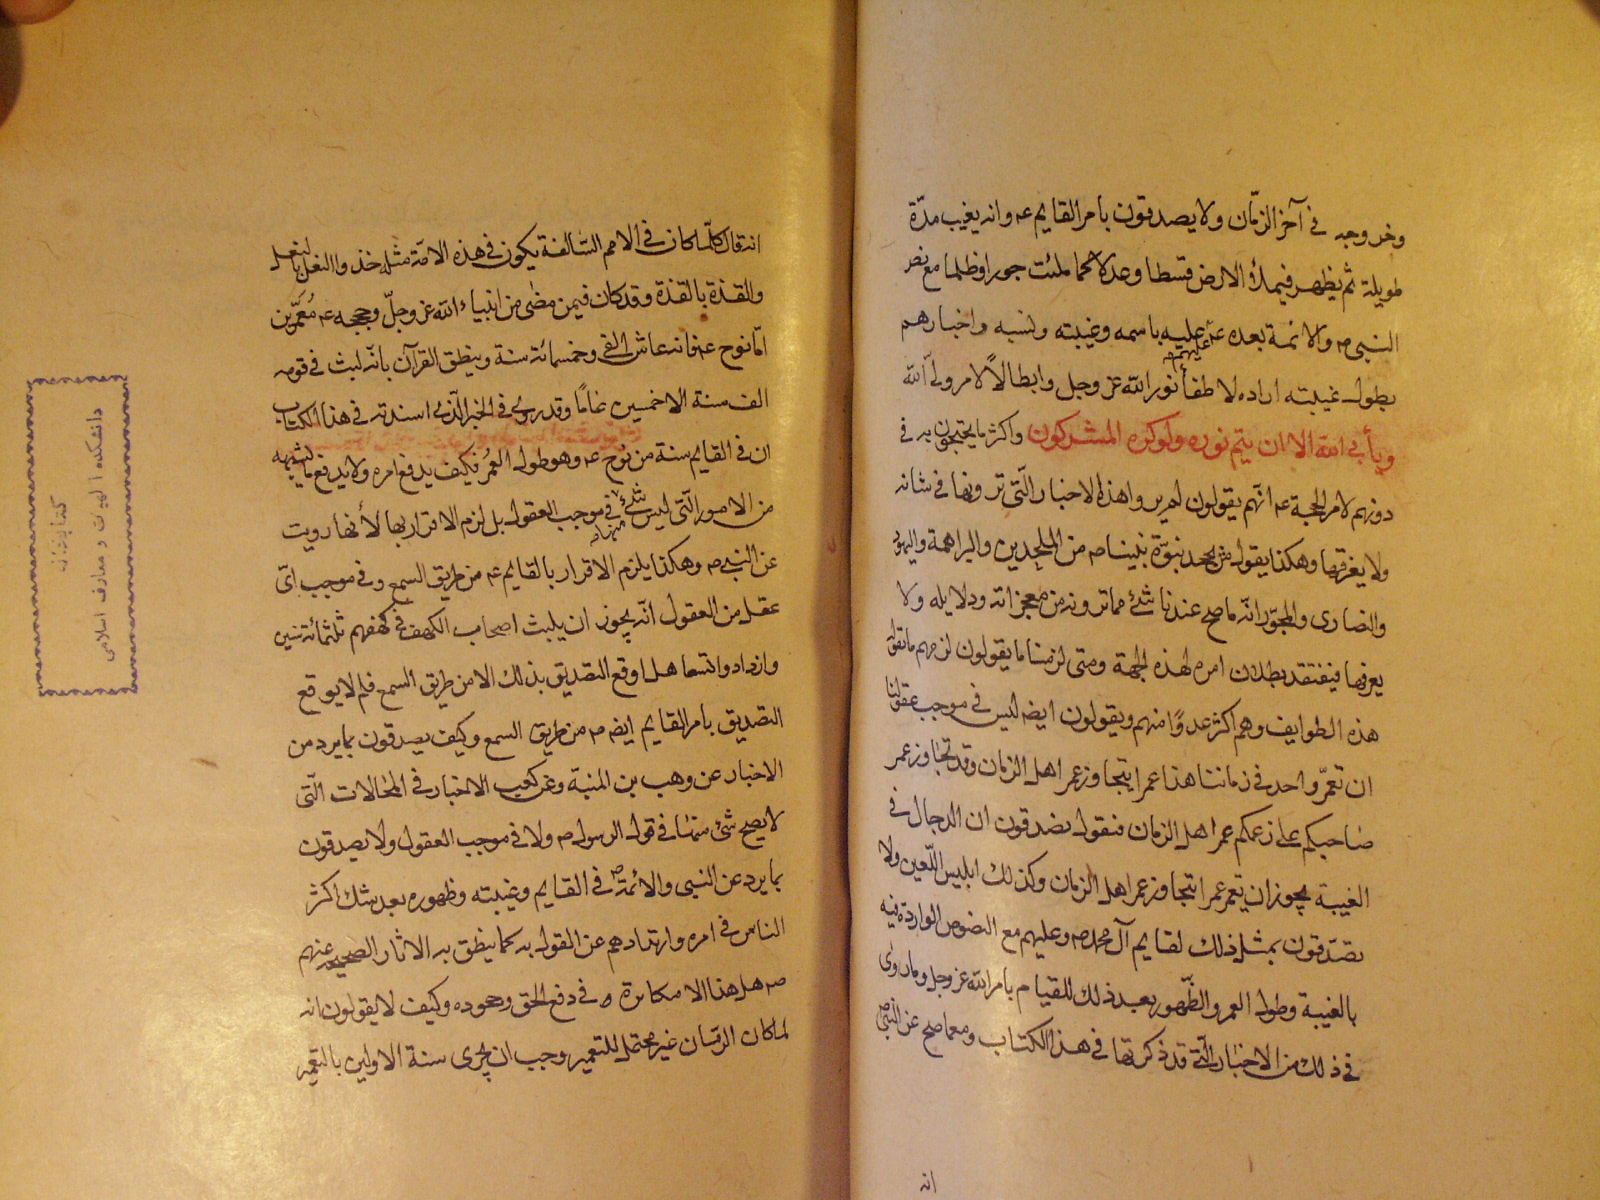 وخروجه في آخر الزمان ولا يصدقون بامر القايم عه وانه يغيب مدّة
طويلة ثم يظهر فيملأ الارض قسطا وعدلا كما ملئت جورا وظلما مع نص
النبي ص والائمة بعده عليه باسمه وغيبته ونسبه واخبارهم
عليهم
بطول غيبته اراده لاطفأ نور الله عز وجل وابطالاً لامر وليّ الله
ويأبى الله الا ان يتم نوره ولو كره المشركون واكثر ما يحتجون به في
دفعهم لامر الحجة عه انّهم يقولون لم يروا هذه الاخبار الّتي تروونها في شانه
ولا يعرفها وهكذا يقول من يجحد بنبوّة نبينا ص من الملحدين والبراهمة واليهود
والنصارى والمجوس انّه ما صح عندنا شئ مما تروونه من معجزاته ودلايله ولا
يعرفها فيعتقد بطلان امره لهذه الجهة ومتى لزمنا ما يقولون لزمهم ما تقوله
هذه الطوايف وهم اكثر عددًا منهم ويقولون ايضه ليس في موجب عقولنا
ان تعمّر واحد في زماننا هذا عمرا يتجاوز عمر اهل الزمان وقد تجاوز عمر
صاحبكم على زعمكم عمر اهل الزمان فنقول تصدقون ان الدجال في
الغيبة يجوز ان يتعمر عمرا يتجاوز عمر اهل الزمان وكذلك ابليس اللّعين ولا
تصدقون بمثل ذلك لقايم آل محمد ص وعليهم مع النصوص الواردة فيه
بالغيبة وطول العمر والظّهور بعد ذلك للقيام بامر الله عز وجل وما روى
في ذلك من الاخبار الّتي قد ذكرتها في هذا الكتاب ومع ما صح عن النبي ص
انه
انه قال كلّما كان في الامم السّالفة يكون في هذه الامّة مثله حذو النعل بالنعل
والقذة بالقذة وقد كان فيمن مضى من انبياء الله عز وجلّ وحججه عه مُعَمَّرين
امّا نوح عه فانه عاش الفي وخمسمائة سنة وينطق القرآن بانّه لبث في قومه
الف سنة الا خمسين عامًا وقد روى في الخبر الّذي اسندته في هذا الكتاب
ان في القايم سنة من نوح عه وهو طول العمُر فكيف يدفع امره ولا يدفع ما يشبهه
من الامور الّتي ليس شئ منها في موجب العقول بل لزم الاقرار بها لأنها رويت
عن النبي ص وهكذا يلزم الاقرار بالقايم عه من طريق السمع وفي موجب ايّ
عقل من العقول انّه يجوز ان يلبث اصحاب الكهف في كهفهم ثلثمائة سنين
وازدادوا تسعا هل وقع التصديق بذلك الا من طريق السمع فلم لا يوقع
التصديق بامر القايم ايضه من طريق السمع وكيف يصدقون بما يرد من
الاخبار عن وهب بن المنبّه وعن كعب الاخبار في المُحالات الّتي
لا يصح شئ منها في قول الرسول ص ولا في موجب العقول ولا يصدقون
بما يرد عن النبي والائمة ص في القايم وغيبته وظهوره بعد شك اكثر
الناس في امره وارتدادهم عن القول به كما ينطق به الاثار الصحيحه عنهم
ص هل هذا الا مكابرة في دفع الحق وجحوده وكيف لا يقولون انه
لما كان الزمان غير محتمل للتعمير وجب ان يجرى سنة الاولين بالتعمير
كتابخانه
دانشكده الهيات و معارف اسلامى